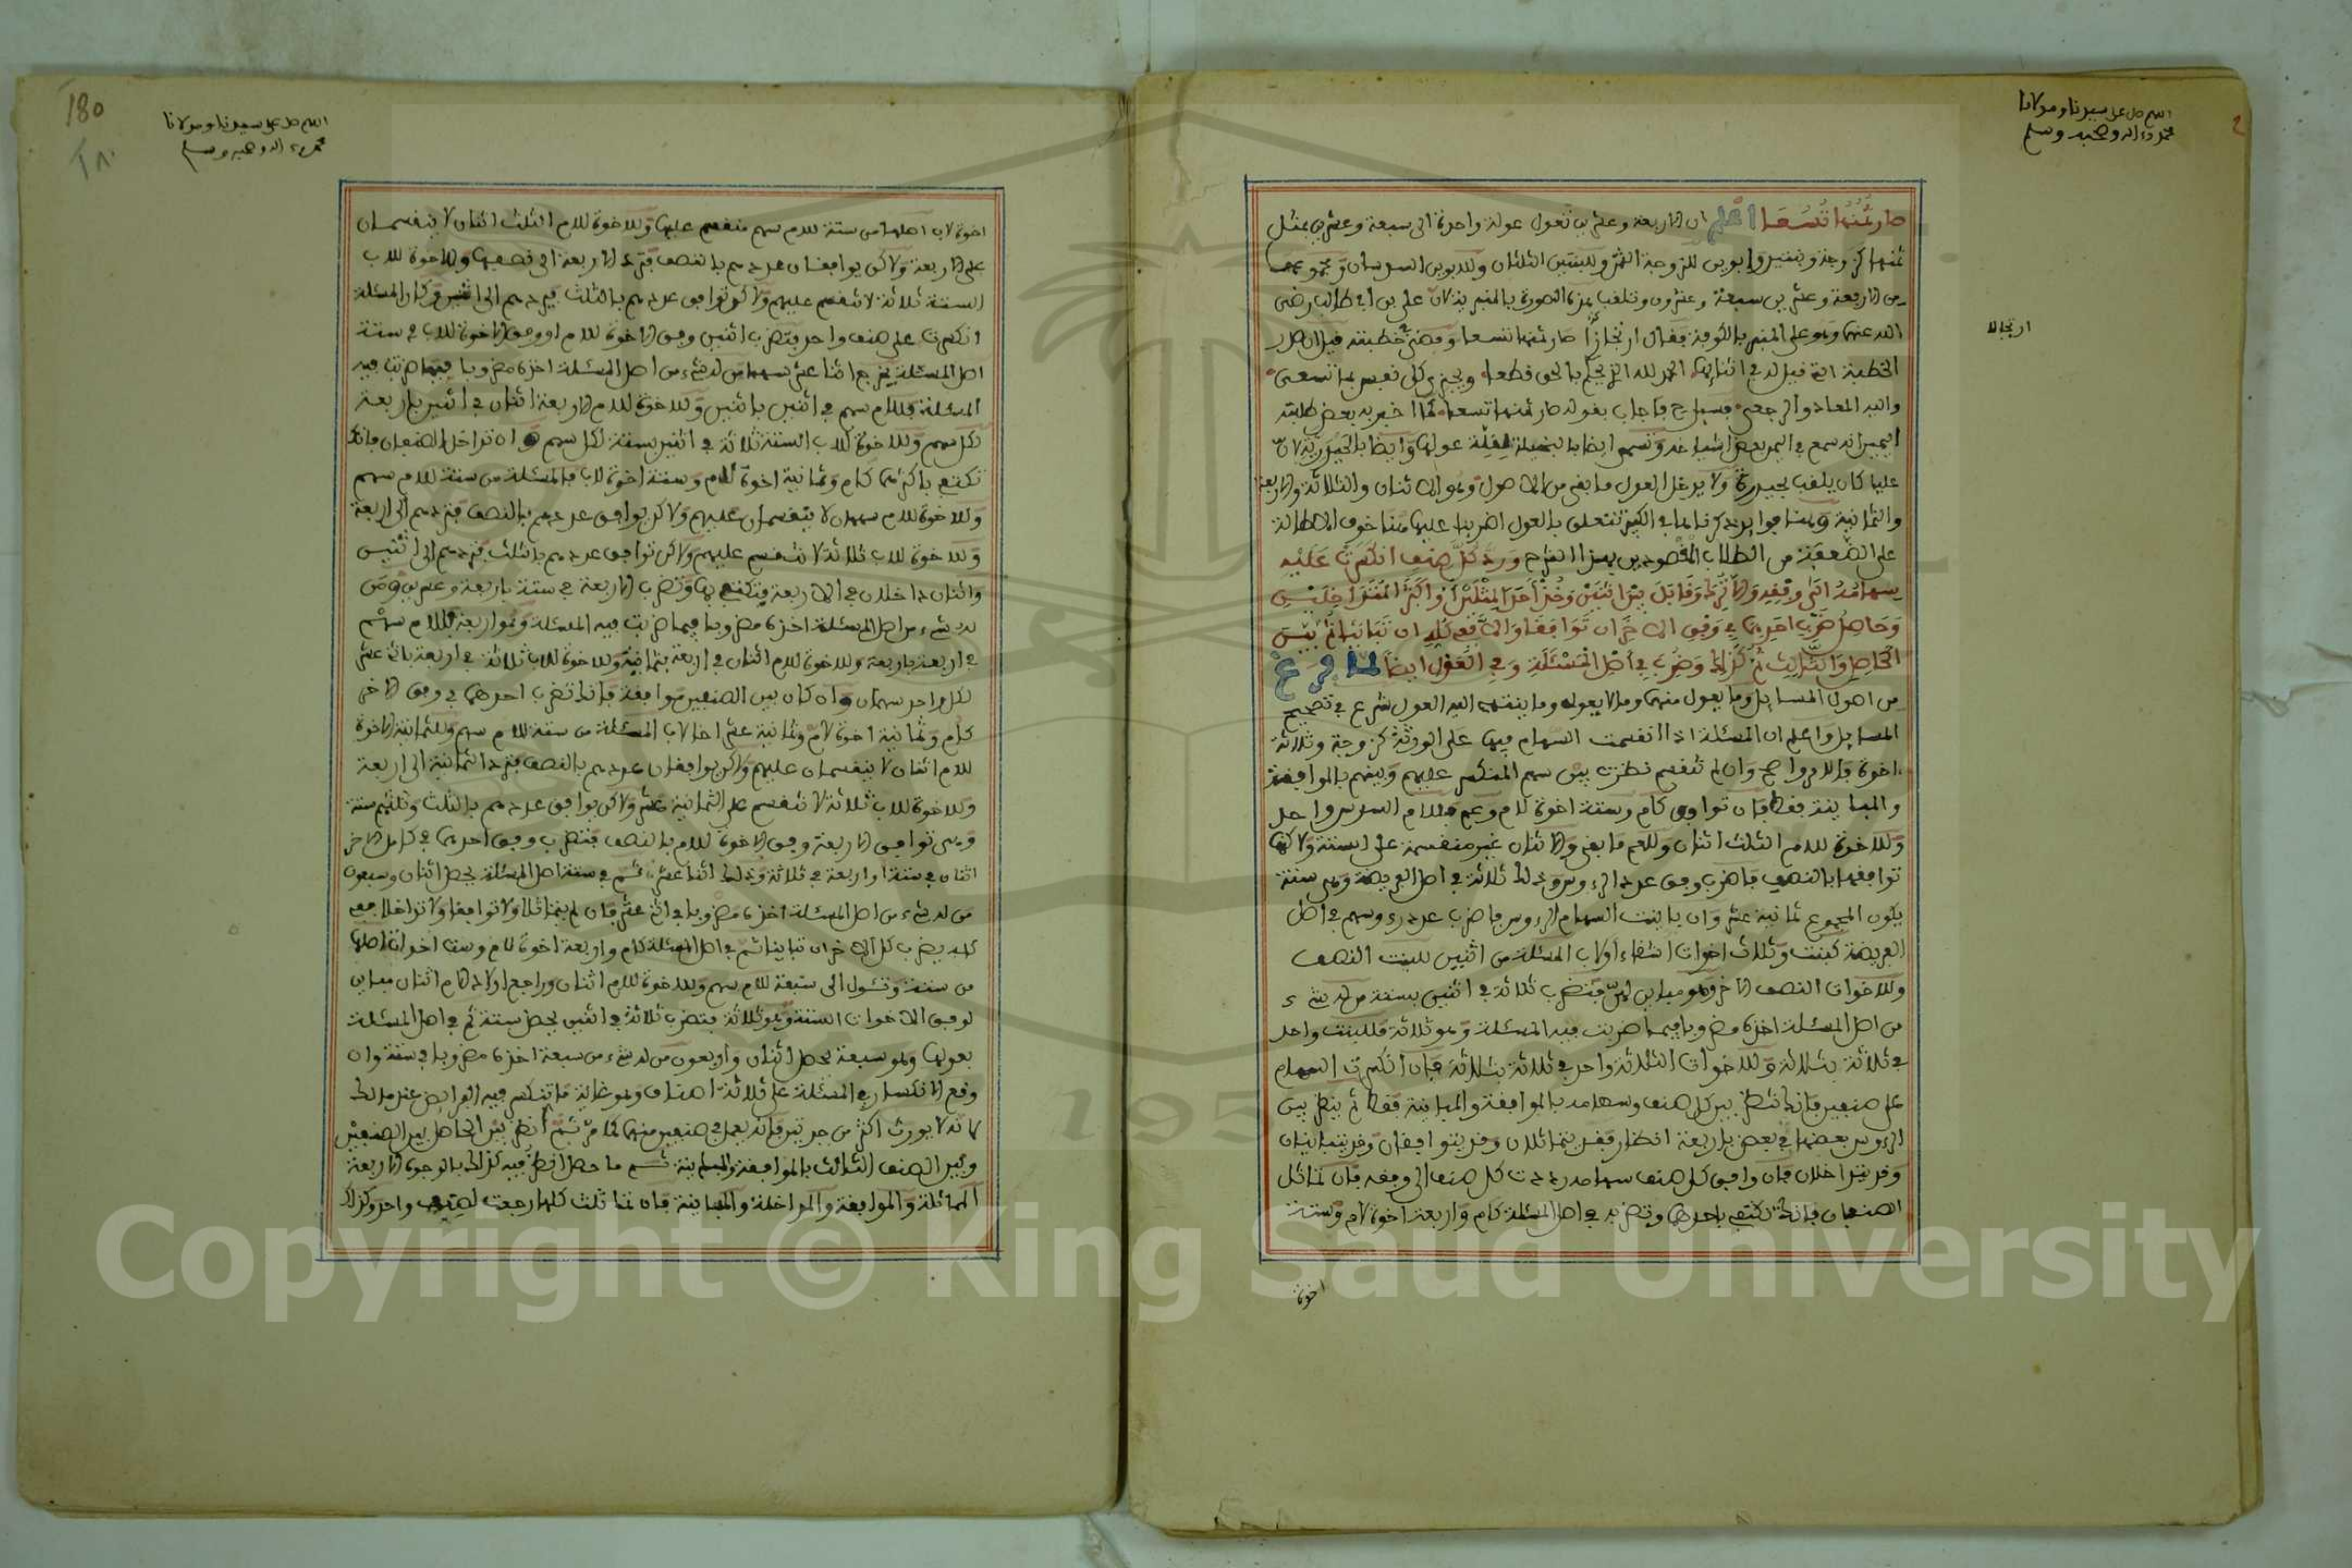 اللهم صل على سيدنا ومولانا
محمد وءاله وصحبه وسلم
صار ثُمُنُهَا تُسُعَا اعلم ان الاربعة وعشرين تعول عولة واحدة الى سبعة وعشرين بمثل
ثمنها كزوجة وبنتين وابوين للزوجة الثمن وللبنتين الثلثان وللابوين السدسان ومجموعها
من الاربعة وعشرين سبعة وعشرون وتلقب هذه الصورة بالمنبرية لان علي بن ابي طالب رضي
الله عنه وهو على المنبر بالكوفة فقال ارتجازا صار ثمنها تسعا ومضى في خطبته قيل ان صدر
الخطبة التي قيل له في اثنائها الحمد لله الذي يحكم بالحق قطعا ويجزي كل نفس بما تسعى
واليه المعاد والرجعى فسئل فاجاب بقوله صار ثمنها تسعا كما اخبر به بعض طلبته
انه سمع في اليمن بعض اشياخه وتسمى ايضا بالبخيلة لقلة عولها وايضا بالحيدرية لان
عليا كان يلقب بحيدرة ولا يدخل العول ما بقي من الاصول وهو الاثنان والثلاثة والاربعة
والثمانية وهنا فوائد ذكرناها في الكبير تتعلق بالعول اضربنا عليها هنا خوف الاطالة
على الضعفة من الطلاب المقصودين بهذا الشرح وَرُدَّ كُلَّ صِنْفٍ انكسَرَتْ عَلَيْهِ
سِهَامُهُ الَى وِفْقِهِ وَالَّا تُرِكَ وَقَابَلَ بَيْنَ اثْنَيْنِ وَخُذْ أَحَدَ الْمِثْلَيْنِ أَوْ أَكْثَرَ الْمُتَدَاخِلَيْنِ
وَحَاصِلَ ضَرْبِ احَدِهِمَا فِي وَفْقِ الاخَرِ ان تَوَافَقَا وَالَّا فَفِي كُلِّهِ ان تَبَايَنَا ثُمَّ بَيْنَ
الْحَاصِلِ وَالثَّالِثِ ثُمَّ كَذَلِكَ وَضُرِبَ فِي أَصْلِ الْمَسْئَلَةِ وَفِي الْعَوْلِ ايضًا لما فرغ
من اصول المسائل وما يعول منها وما لا يعول وما ينتهي اليه العول شرع في تصحيح
المسائل واعلم ان المسئلة اذا انقسمت السهام فيها على الورثة كزوجة وثلاثة
اخوة فالامر واضح وان لم تنقسم نظرت بين سهم المنكسر عليهم وبينهم بالموافقة
والمباينة فقط فان توافق كام وستة اخوة لام وعم فللام السدس واحد
وللاخوة للام الثلث اثنان وللعم ما بقي والاثنان غير منقسمة على الستة ولاكنها
توافقها بالنصف فاضرب وفق عدد الرءوس وذلك ثلاثة في اصل الفريضة وهي ستة
يكون المجموع ثمانية عشر وان باينت السهام الرءوس فاضرب عدد رءوسهم في اصل
الفريضة كبنت وثلاث اخوات اشقاء او لاب المسئلة من اثنين للبنت النصف
وللاخوات النصف الاخر وهو مباين لهن فتضرب ثلاثة في اثنين بستة من له شيء
من اصل المسئلة اخذه مضروبا فيما ضربت فيه المسئلة وهو ثلاثة فللبنت واحد
في ثلاثة بثلاثة وللاخوات الثلاثة واحد في ثلاثة بثلاثة فان انكسرت السهام
على صنفين فانك تنظر بين كل صنف وسهامه بالموافقة والمباينة فقط ثم ينظر بين
الرءوس بعضها في بعض باربعة انظار فقد يتماثلان وقد يتوافقان وقد يتباينان
وقد يتداخلان فان وافق كل صنف سهامه رددت كل صنف الى وفقه فان تماثل
الصنفان فانك تكتفي باحدهما وتضربه في اصل المسئلة كام واربعة اخوة لام وستة
اخوة
ارتجالا
180
١٨٠
اللهم صل على سيدنا ومولانا
محمد وءاله وصحبه وسلم
اخوة لاب اصلها من ستة للام سهم منقسم عليها وللاخوة للام الثلث اثنان لا ينقسمان
على الاربعة ولاكن يوافقان عددهم بالنصف فترد الاربعة الى نصفها وللاخوة للاب
الستة ثلاثة لا تنقسم عليهم ولاكن توافق عددهم بالثلث فيرد عددهم الى اثنين فكان المسئلة
انكسرت على صنف واحد فتضرب اثنين وفق الاخوة للام او وفق الاخوة للاب في ستة
اصل المسئلة يخرج اثنا عشر سهما من له شيء من اصل المسئلة اخذه مضروبا فيما ضربت فيه
المسئلة فللام سهم في اثنين باثنين وللاخوة للام الاربعة اثنان في اثنين باربعة
لكل سهم وللاخوة للاب الستة ثلاثة في اثنين بستة لكل سهم وان تداخل الصنفان فانك
تكتفي باكثرهما كام وثمانية اخوة للام وستة اخوة لاب فالمسئلة من ستة للام سهم
وللاخوة للام سهمان لا ينقسمان عليهم ولاكن يوافق عددهم بالنصف فيرد عددهم الى اربعة
وللاخوة للاب ثلاثة لا تنقسم عليهم ولاكن توافق عددهم بالثلث فترددهم الى اثنين
والاثنان داخلان في الاربعة فتكتفي بها وتضرب الاربعة في ستة باربعة وعشرين ومن
له شيء من اصل المسئلة اخذه مضروبا فيما ضربت فيه المسئلة وهو اربعة فللام سهم
في اربعة باربعة وللاخوة للام اثنان في اربعة بثمانية وللاخوة للاب ثلاثة في اربعة باثني عشر
لكل واحد سهمان وان كان بين الصنفين موافقة فانك تضرب احدهما في وفق الاخر
كام وثمانية اخوة لام وثمانية عشر اخا لاب المسئلة من ستة للام سهم وللثمانية الاخوة
للام اثنان لا ينقسمان عليهم ولاكن يوافقان عددهم بالنصف فترد الثمانية الى اربعة
وللاخوة للاب ثلاثة لا تنقسم على الثمانية عشر ولاكن يوافق عددهم بالثلث وثلثهم ستة
وهي توافق الاربعة وفق الاخوة للام بالنصف فتضرب وفق احدهما في كامل الاخر
اثنان في ستة او اربعة في ثلاثة وذلك اثنا عشر ثم في ستة اصل المسئلة يحصل اثنان وسبعون
من له شيء من اصل المسئلة اخذه مضروبا في اثني عشر فان لم يتماثلا ولا توافقا ولا تداخلا ففي
كله يضرب كل الاخر ان تباينا ثم في اصل المسئلة كام واربعة اخوة لام وست اخوات اصلها
من ستة وتعول الى سبعة للام سهم وللاخوة للام اثنان وراجع اولاد الام اثنان مباين
لوفق الاخوات الستة وهو ثلاثة فتضرب ثلاثة في اثنين يحصل ستة ثم في اصل المسئلة
بعولها وهو سبعة يحصل اثنان واربعون من له شيء من سبعة اخذه مضروبا في ستة وان
وقع الانكسار في المسئلة على ثلاثة اصناف وهو غاية ما تنكسر فيه الفرائض عند مالك
لانه لا يورث اكثر من جدتين فانه يعمل في صنفين منها كما مر ثم انظر بين الحاصل من الصنفين
وبين الصنف الثالث بالموافقة والمباينة ثم ما حصل انظر فيه كذلك بالوجوه الاربعة
المماثلة والموافقة والمداخلة والمباينة فان تماثلت كلها رجعت لصنف واحد وكذلك
Copyright © King Saud University